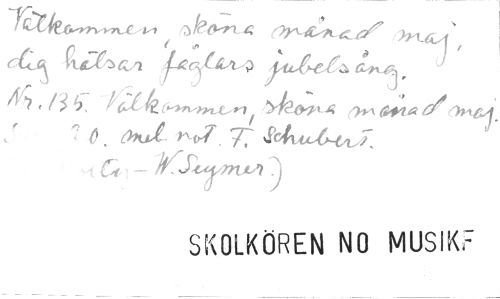 Välkommen, sköna månad maj,
dig hälsar fåglars jubelsång.
Nr. 135. Välkommen, sköna månad maj.
0. mel. not. F. Schubert.
– W. Seymer.)
SKOLKÖREN NO MUSIKF